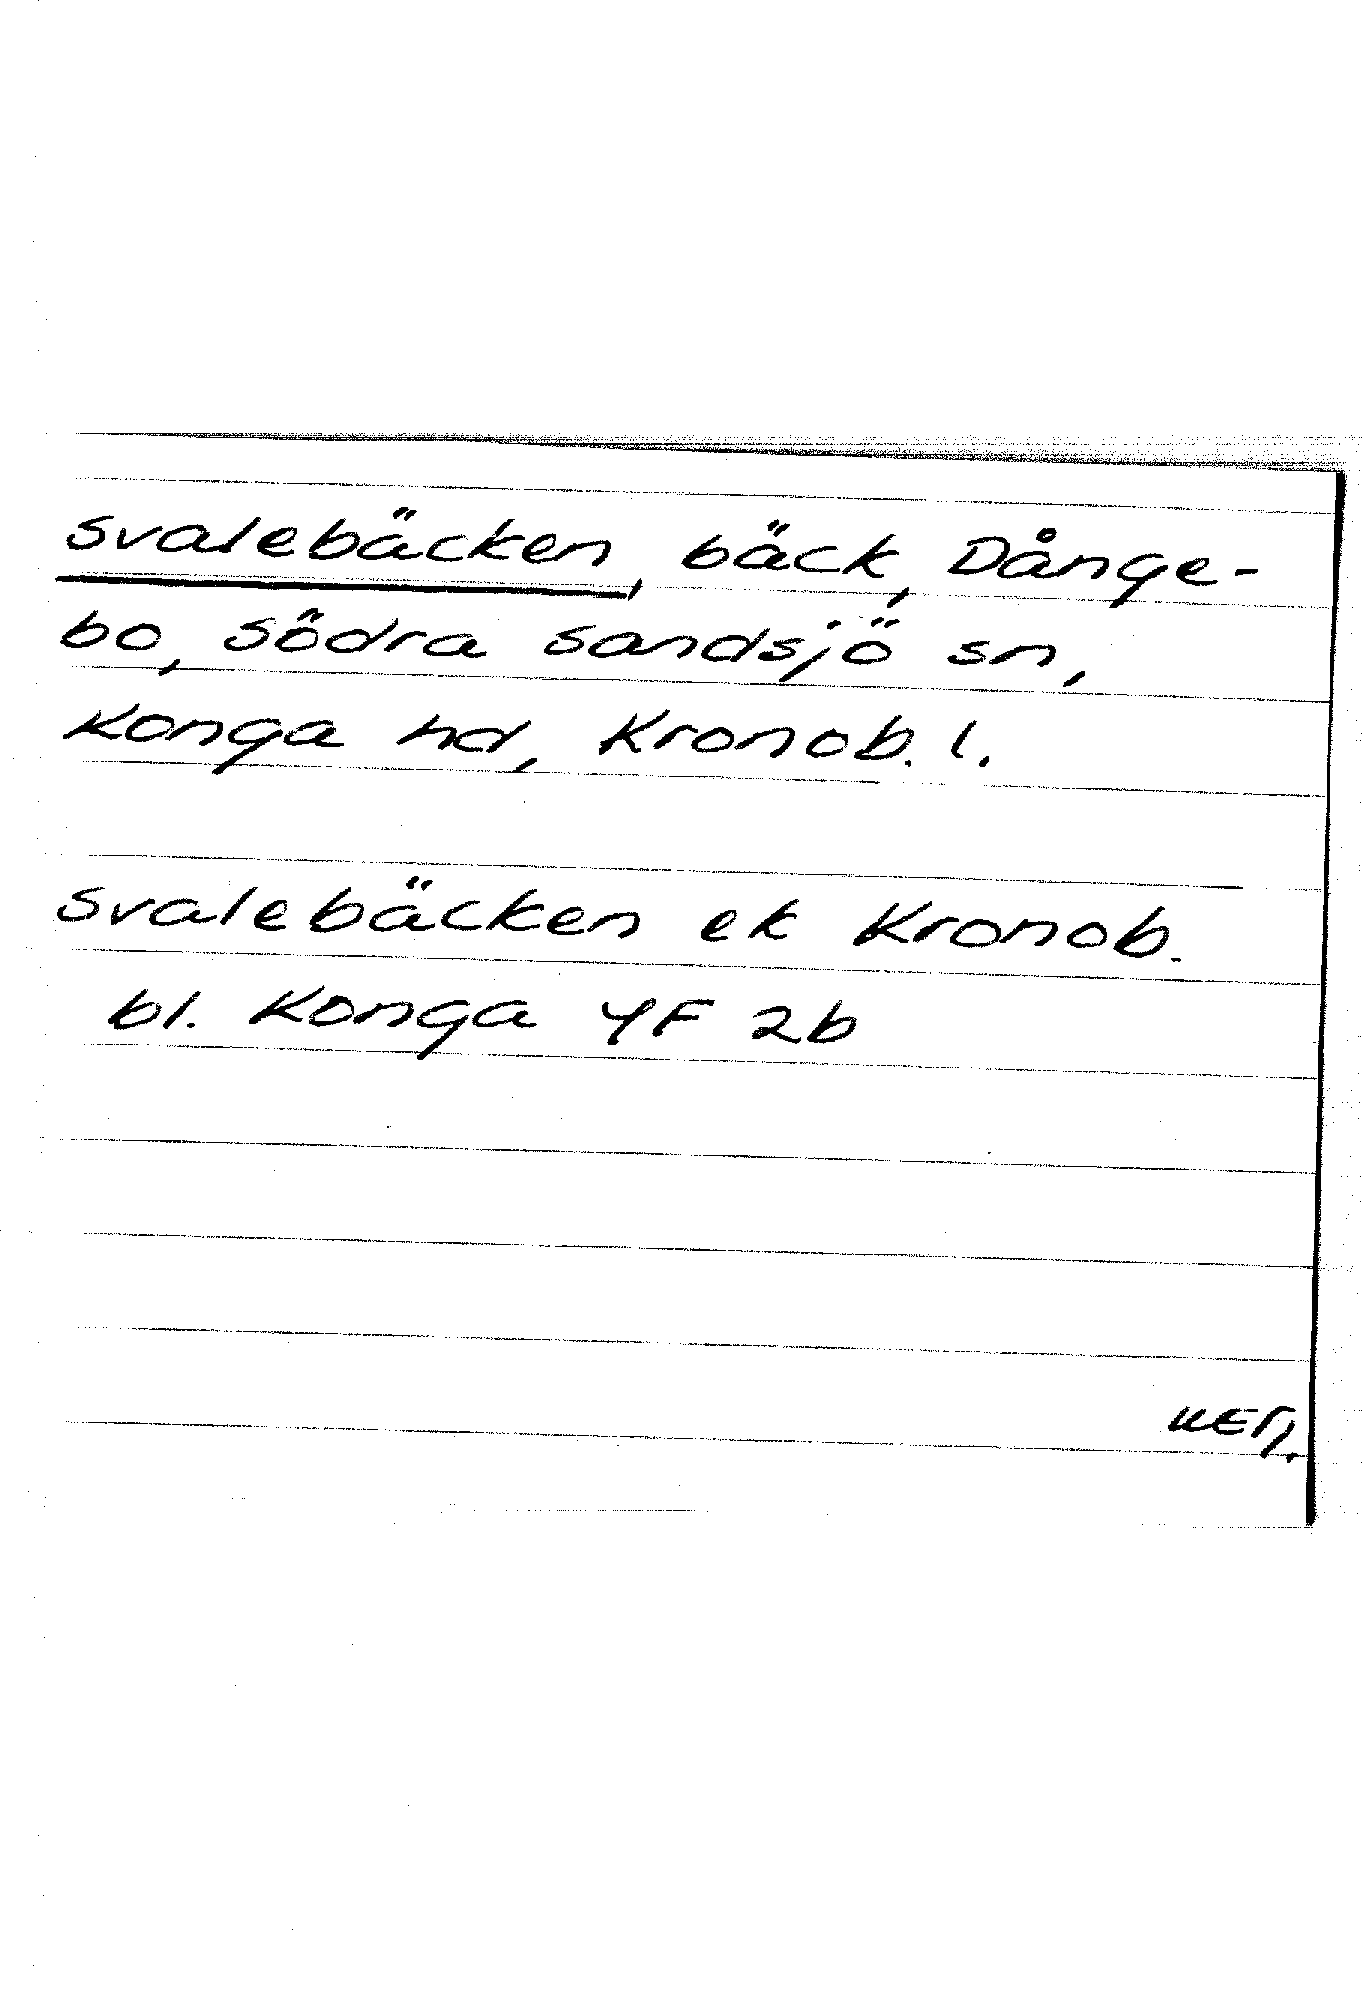 Svalebäcken, bäck, Dånge-
bo, Södra Sandsjö sn,
Konga hd, Kronob. l.
Svalebäcken ek Kronob.
bl. Konga 4F 2b